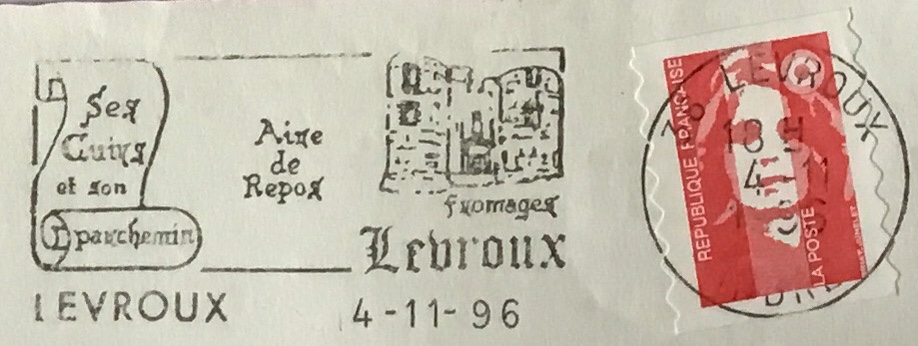 Ses
Cuirs
et son
parchemin
Aire
de
Repos
fromages
Levroux
LEVROUX 4-11-96
RÉPUBLIQUE FRANÇAISE
LA POSTE
LEVROUX
18 H
4 - 11